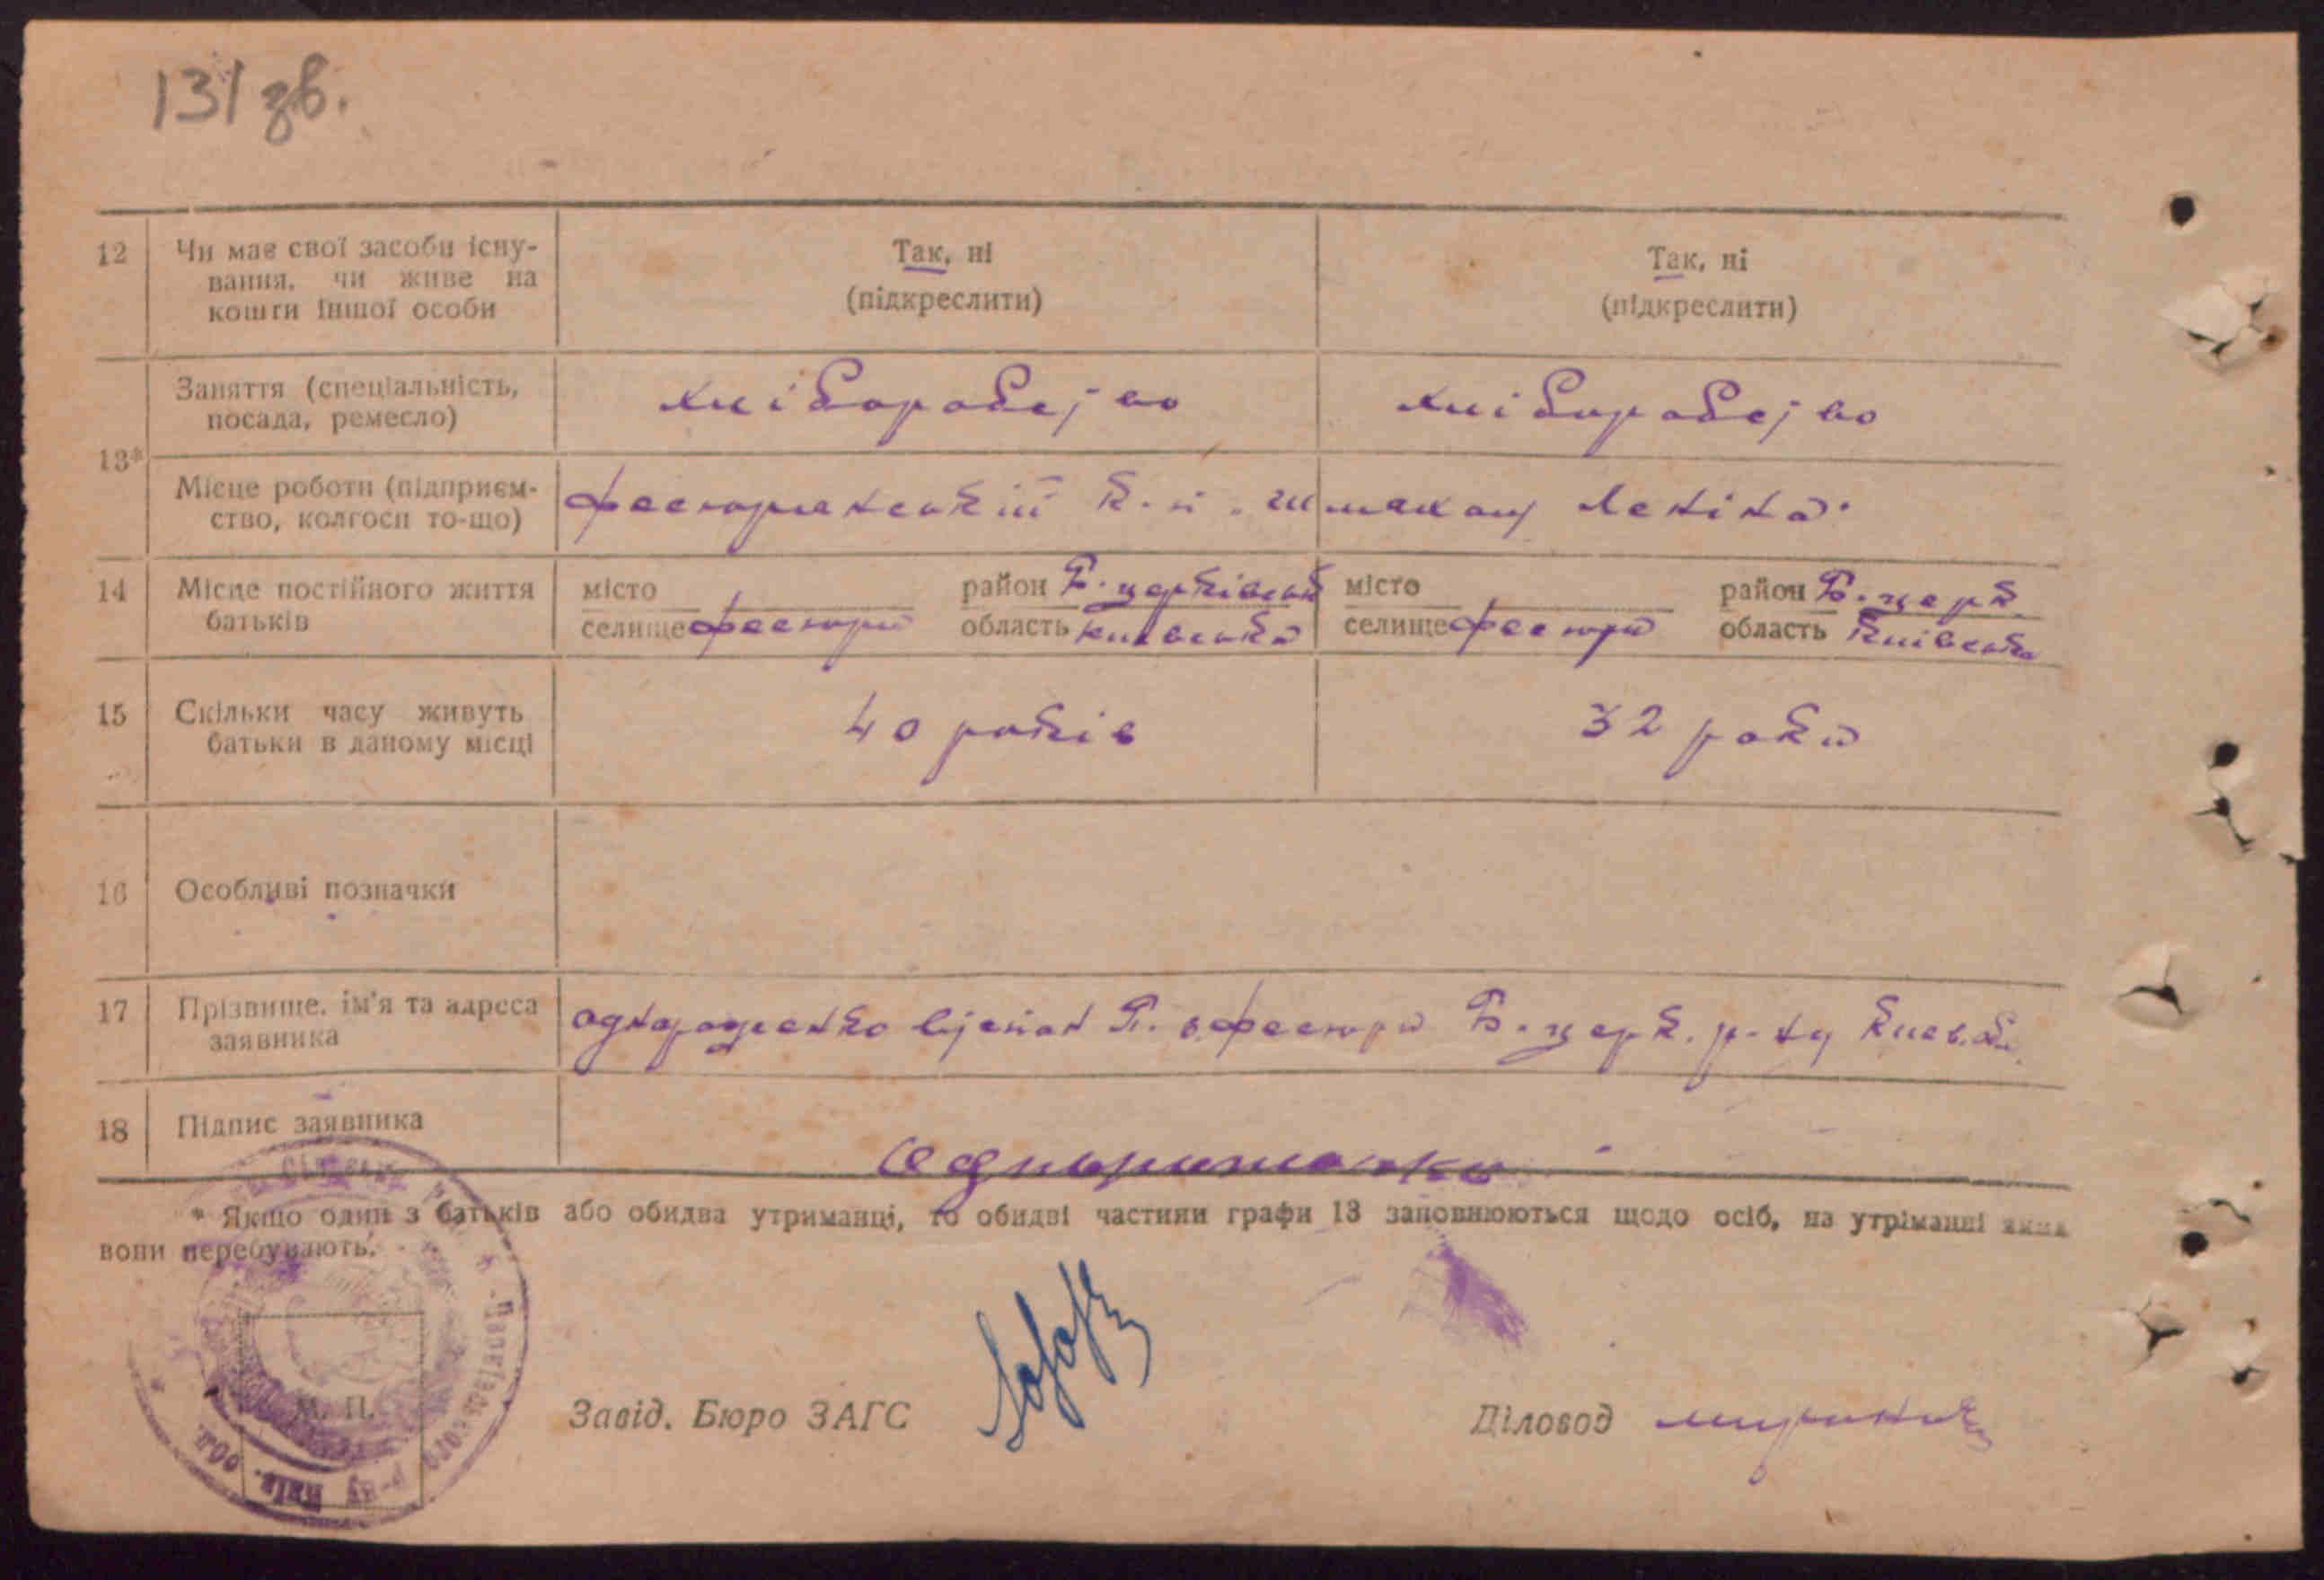 131 зв.
12 Чи має свої засоби існу-
вання, чи живе на
кошти іншої особи
Так, ні
(підкреслити)
Так, ні
(підкреслити)
13*
Заняття (спеціальність,
посада, ремесло)
хліборобство
хліборобство
Місце роботи (підприєм-
ство, колгосп то-що)
Леніна
14 Місце постійного життя
батьків
місто
селище
район Б. церківськ
область Київська
місто
селище
район Б. церк.
область Київська
15 Скільки часу живуть
батьки в даному місці
40 років
32 роки
16 Особливі позначки
17 Прізвище, ім'я та адреса
заявника
Однороженко Б. церк. р-ну Киев. об.
18 Підпис заявника
* Якщо один з батьків або обидва утриманці, то обидві частини графи 13 заповнюються щодо осіб, на утріманні яких
вони перебувають.
М. П.
Церківського р-ну Київ. обл.
Завід. Бюро ЗАГС
Діловод